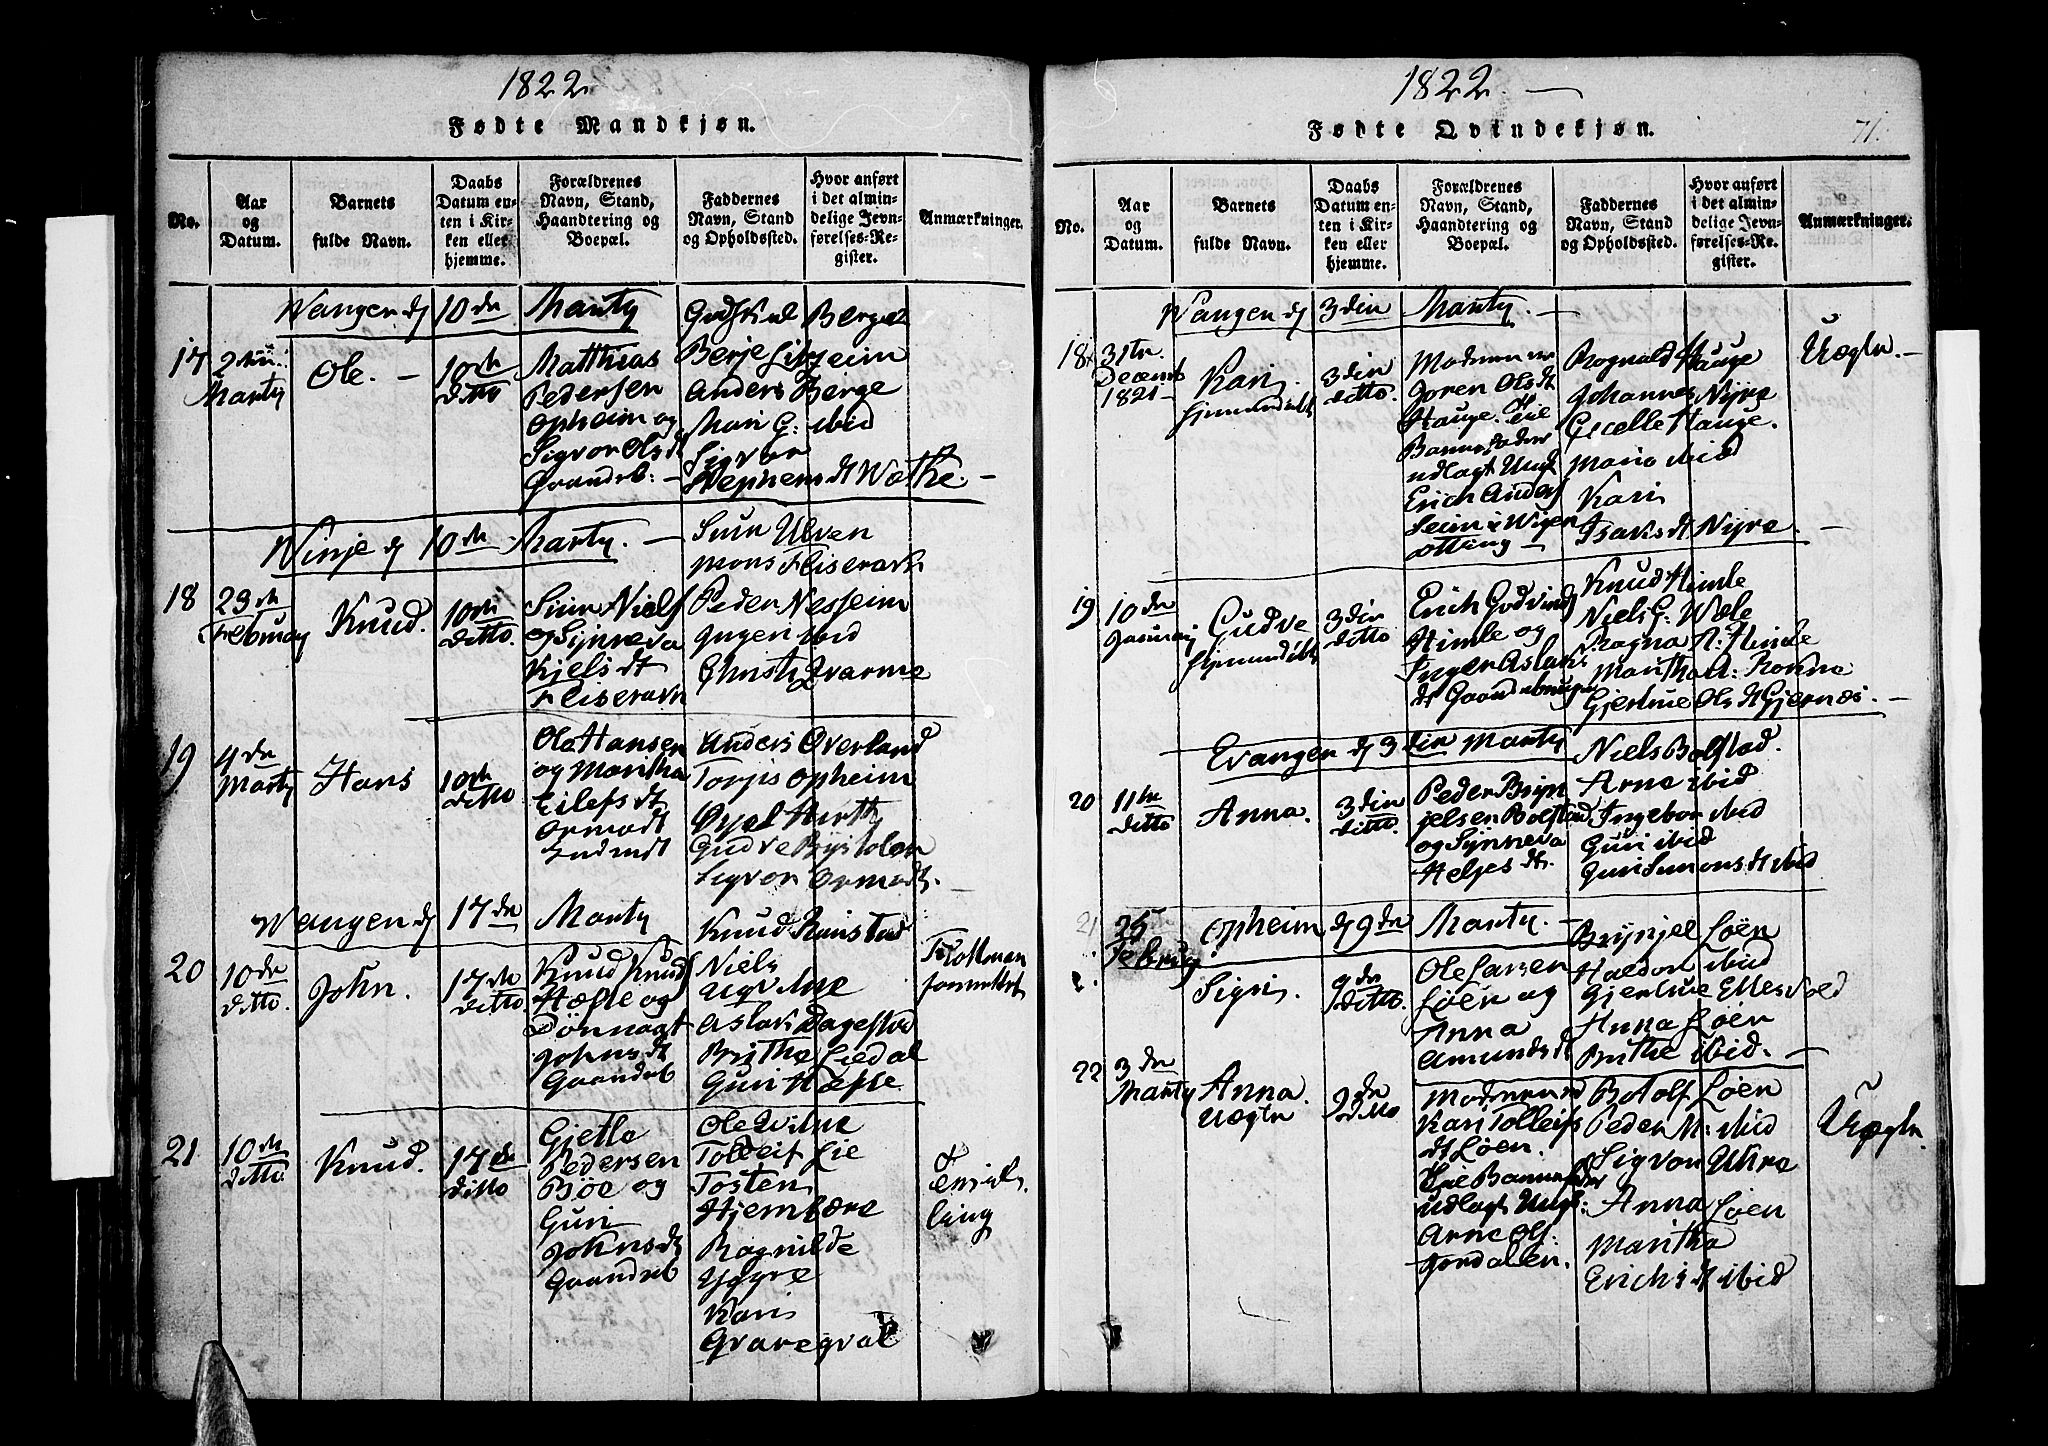 1822
Fødte Mandkjøn.
No.
Aar
og
Datum.
Barnets
fulde Navn.
Daabs
Datum en-
ten i Kir-
ken eller
hjemme.
Forældrenes
Navn, Stand,
Haandtering og
Boepæl.
Faddernes
Navn, Stand
og Opholdssted.
Hvor anført
i det almin-
delige Jevn-
førelses-Re-
gister.
Anmærkninger.
Wangen d 10de Marty
17
2den
Marty
Ole. -
10de
ditto
Matthias
Pedersen
Opheim og
Sigvor Ols dt
Gudskal Berge
Berje Seim
Anders Berge
Mari G: ibid
Sigvor
dt Wethe. -
Winje d 10de Marty. -
18
23de
February
Knud.
10de
ditto.
Siur Niels
og Synneva
Kjels dt
Fliseravn
Siur Ulven
Mons Fliseravn
Peder Nesheim
Ingeri ibid
Christi Qvarme
19
4de
Marty
Hans
10de
ditto
Ole Hansen
og Martha
Eilefs dt
Ormodt
Anders Overland
Torgis Opheim
Gudve Bystolen
Sigvor Ormodt. -
Wangen d 17de Marty
20
10de
ditto.
John.
17de
ditto
Knud Knuds
Hæfte og
Johns dt
Gaandeb
Knud Rinstad
Niels
Aslak Dagestad
Brythe Liedal
Guri Hæfte
21
10de
ditto.
Knud.
17de
ditto
Gjetle
Pedersen
Bøe og
Guri
Johns dt
Gaandeb
Ole
Tolleif Lie
Tosten
Hjembære
Ragnilde
Kari
Gravegval
1822. -
Fødte Qvindekjøn.
71.
No.
Aar
og
Datum.
Barnets
fulde Navn.
Daabs
Datum en-
ten i Kir-
ken eller
hjemme.
Forældrenes
Navn, Stand,
Haandtering og
Boepæl.
Faddernes
Navn, Stand
og Opholdssted.
Hvor anført
i det almin-
delige Jevn-
førelses-Re-
gister.
Anmærkninger.
Wangen d 3die Marty. -
18
31te
Decemb
1821 -
Kari
hjemmedøbt
3die
ditto.
Moderen er
Joren Ols dt
Hauge.
Barnefader
udlagt Ungk
Erich Anders
Seim i Wigør
otting -
Rognald Hauge
Johannes Nyre
Gicelle Hauge.
Mari ibid
Kari
Isaks dt Nyre. -
Uægte. -
19
10de
January
Gudve
hjemmedøbt
3die
ditto
Erich Godvinds
Himle og
Inger Aslaks
dt Gaandebruger
Knud Himle
Niels G: Wæle
Ragna N: Himle
Martha A: Rokne
Gjertrue Ols dt Gjernæs. -
Evanger d 3die Marty
20
11te
ditto
Anna.
3die
ditto.
Peder Bryn
jelsen Bolstad
og Synneva
Heljes dt.
Niels Bolstad.
Arne ibid
Ingebor ibid
Guri ibid
Guri Simons dt ibid
Opheim d 9de Marty. -
21
25
February
Sigri.
9de
ditto.
Ole Larsen
Løen og
Anna
Amunds dt
Brynjel Løen
Haldor ibid
Gjertrue
Anna Løen
Brithe ibid. -
22
3de
Marty
Anna.
Uægte
9de
ditto
Moderen er
Kari Tolleifs
dt Løen.
Barnefader
udlagt Ungk:
Arne Ols:
Jordalen.
Botolf Løen
Peder M: ibid
Sigvor Uhre
Anna Løen
Martha
Erichs dt ibid
Uægte.